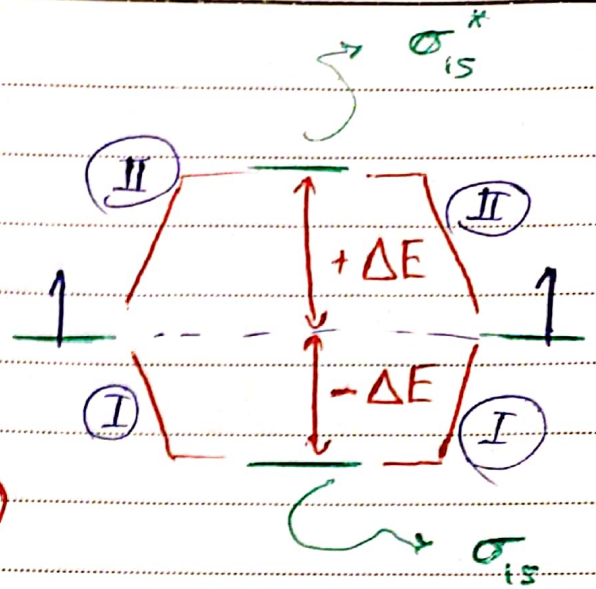 σ*1s
II
II
+ ΔE
- ΔE
I
I
σ1s